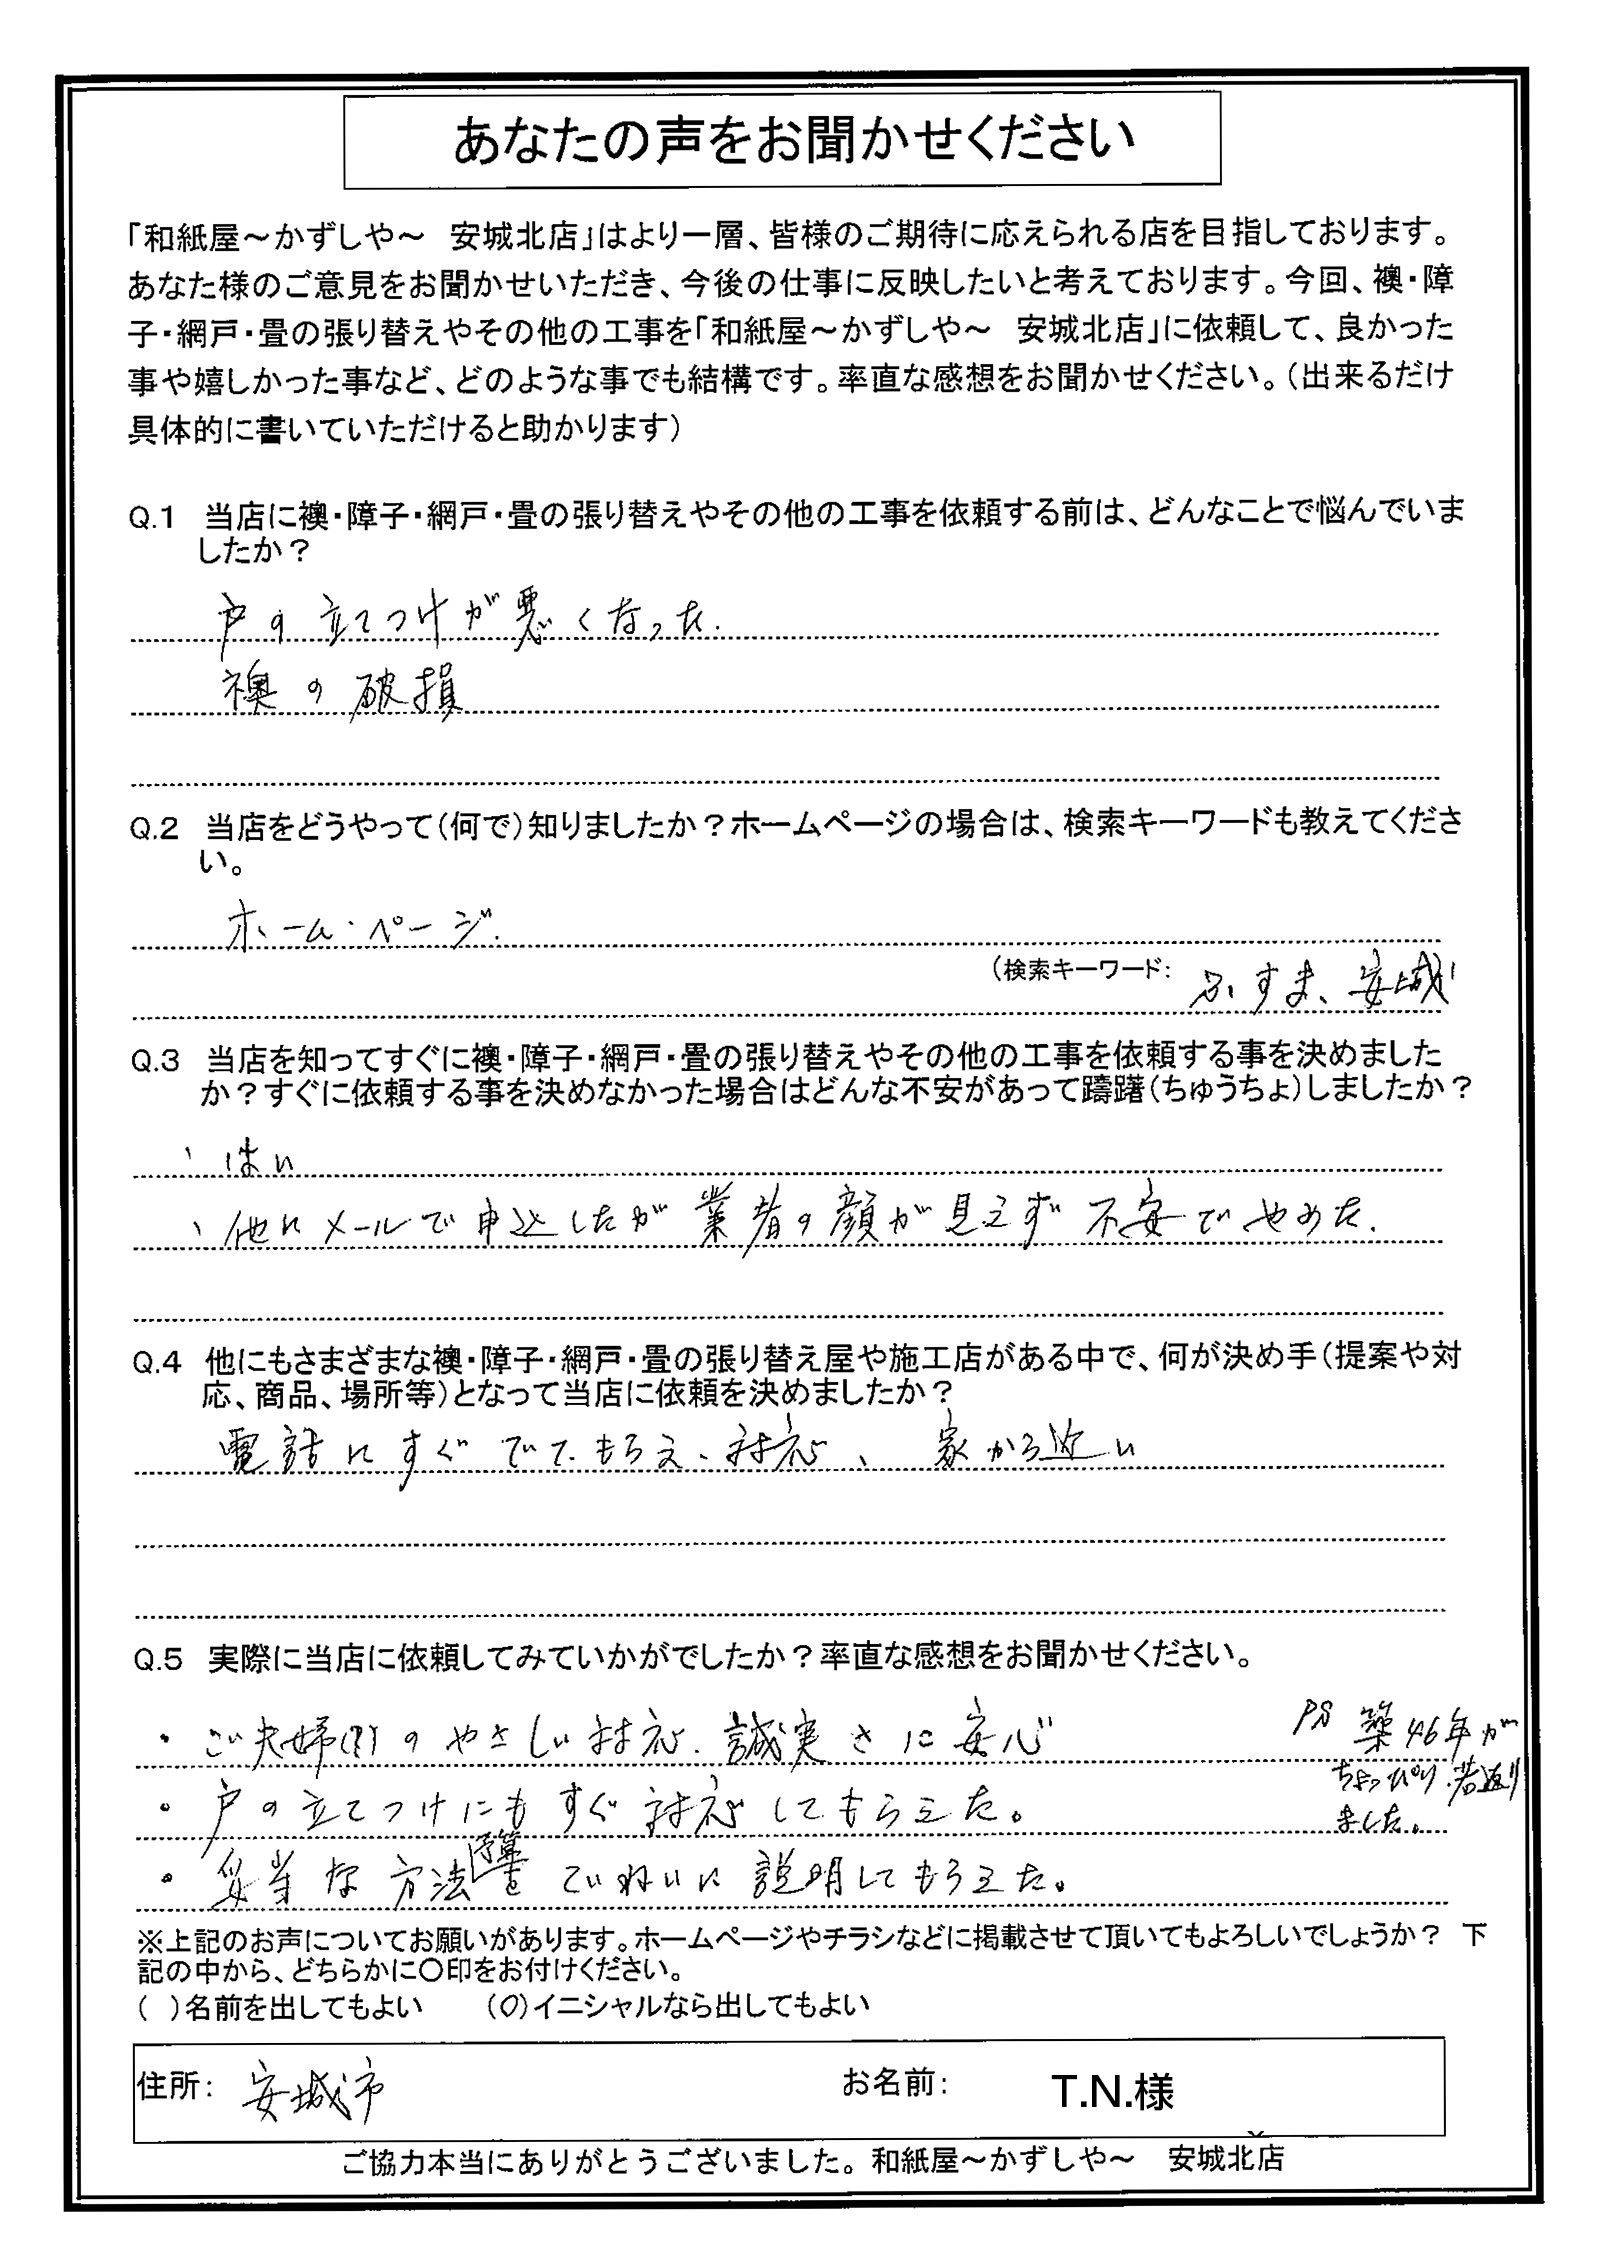 あなたの声をお聞かせください
「和紙屋～かずしや～　安城北店」はより一層、皆様のご期待に応えられる店を目指しております。
あなた様のご意見をお聞かせいただき、今後の仕事に反映したいと考えております。今回、襖・障
子・網戸・畳の張り替えやその他の工事を「和紙屋～かずしや～　安城北店」に依頼して、良かった
事や嬉しかった事など、どのような事でも結構です。率直な感想をお聞かせください。（出来るだけ
具体的に書いていただけると助かります）
Q.1　当店に襖・障子・網戸・畳の張り替えやその他の工事を依頼する前は、どんなことで悩んでいま
したか？
戸の立てつけが悪くなった.
襖の破損
Q.2　当店をどうやって（何で）知りましたか？ホームページの場合は、検索キーワードも教えてくださ
い。
ホーム・ページ.
（検索キーワード：ふすま、安城
Q.3　当店を知ってすぐに襖・障子・網戸・畳の張り替えやその他の工事を依頼する事を決めました
か？すぐに依頼する事を決めなかった場合はどんな不安があって躊躇（ちゅうちょ）しましたか？
、はい
、他にメールで申込したが業者の顔が見えず不安でやめた.
Q.4　他にもさまざまな襖・障子・網戸・畳の張り替え屋や施工店がある中で、何が決め手（提案や対
応、商品、場所等）となって当店に依頼を決めましたか？
電話にすぐでてもらえ、対応、家から近い
Q.5　実際に当店に依頼してみていかがでしたか？率直な感想をお聞かせください。
・ご夫婦(?)のやさしい対応、誠実さに安心
PS 築46年が
ちょっぴり若返り
ました。
・戸の立てつけにもすぐ対応してもらえた。
・妥当な方法予算をていねいに説明してもらえた。
※上記のお声についてお願いがあります。ホームページやチラシなどに掲載させて頂いてもよろしいでしょうか？　下
記の中から、どちらかに○印をお付けください。
（　）名前を出してもよい　　（○）イニシャルなら出してもよい
住所：安城市　お名前：　T.N.様
ご協力本当にありがとうございました。和紙屋～かずしや～　安城北店